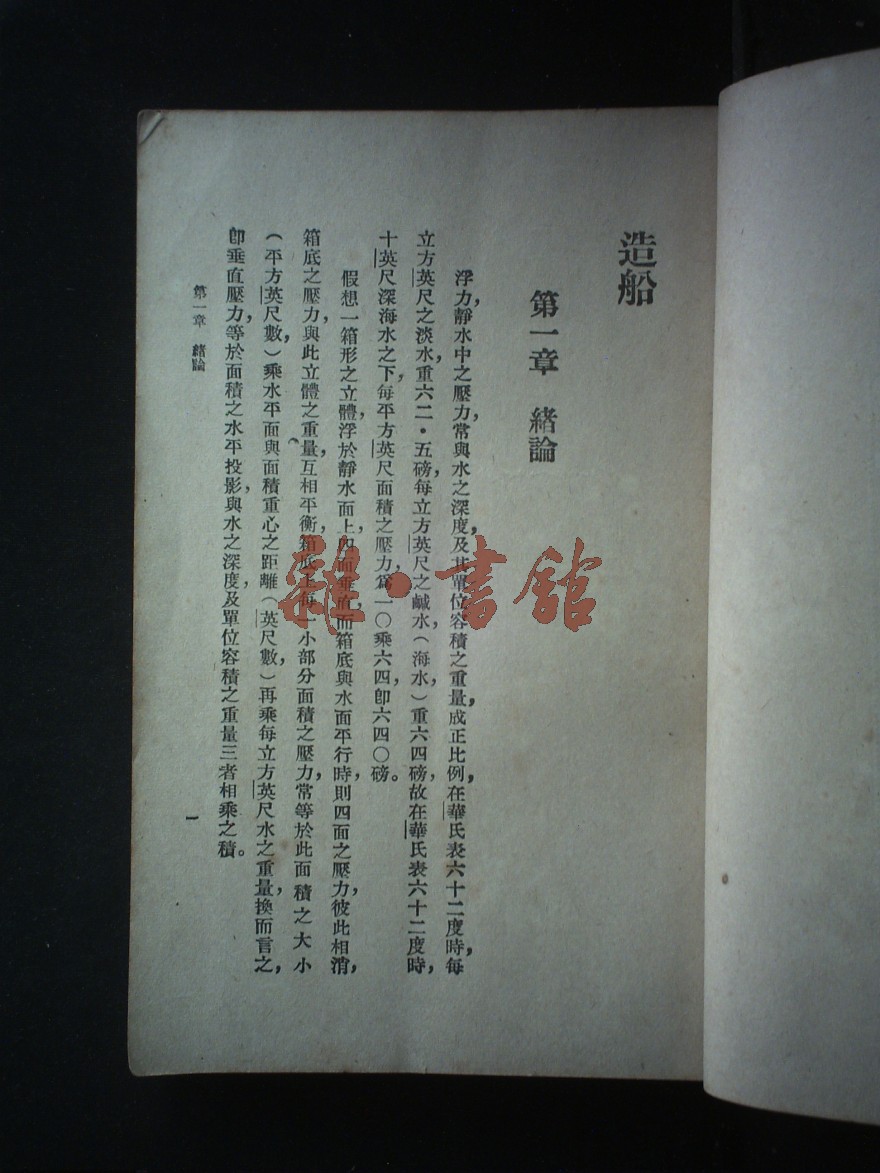 造船
第一章　緒論
浮力，靜水中之壓力，常與水之深度，及其單位容積之重量，成正比例，在華氏表六十二度時，每
立方英尺之淡水，重六二・五磅，每立方英尺之鹹水，（海水）重六四磅，故在華氏表六十二度時，
十英尺深海水之下，每平方英尺面積之壓力，爲一〇乘六四，卽六四〇磅。
假想一箱形之立體，浮於靜水面上，四面垂直，而箱底與水面平行時，則四面之壓力，彼此相消，
箱底之壓力，與此立體之重量，互相平衡，箱底上每一小部分面積之壓力，常等於此面積之大小
（平方英尺數，）乘水平面與面積重心之距離（英尺數，）再乘每立方英尺水之重量，換而言之，
卽垂直壓力，等於面積之水平投影，與水之深度，及單位容積之重量三者相乘之積。
第一章　緒論
一
雜・書館